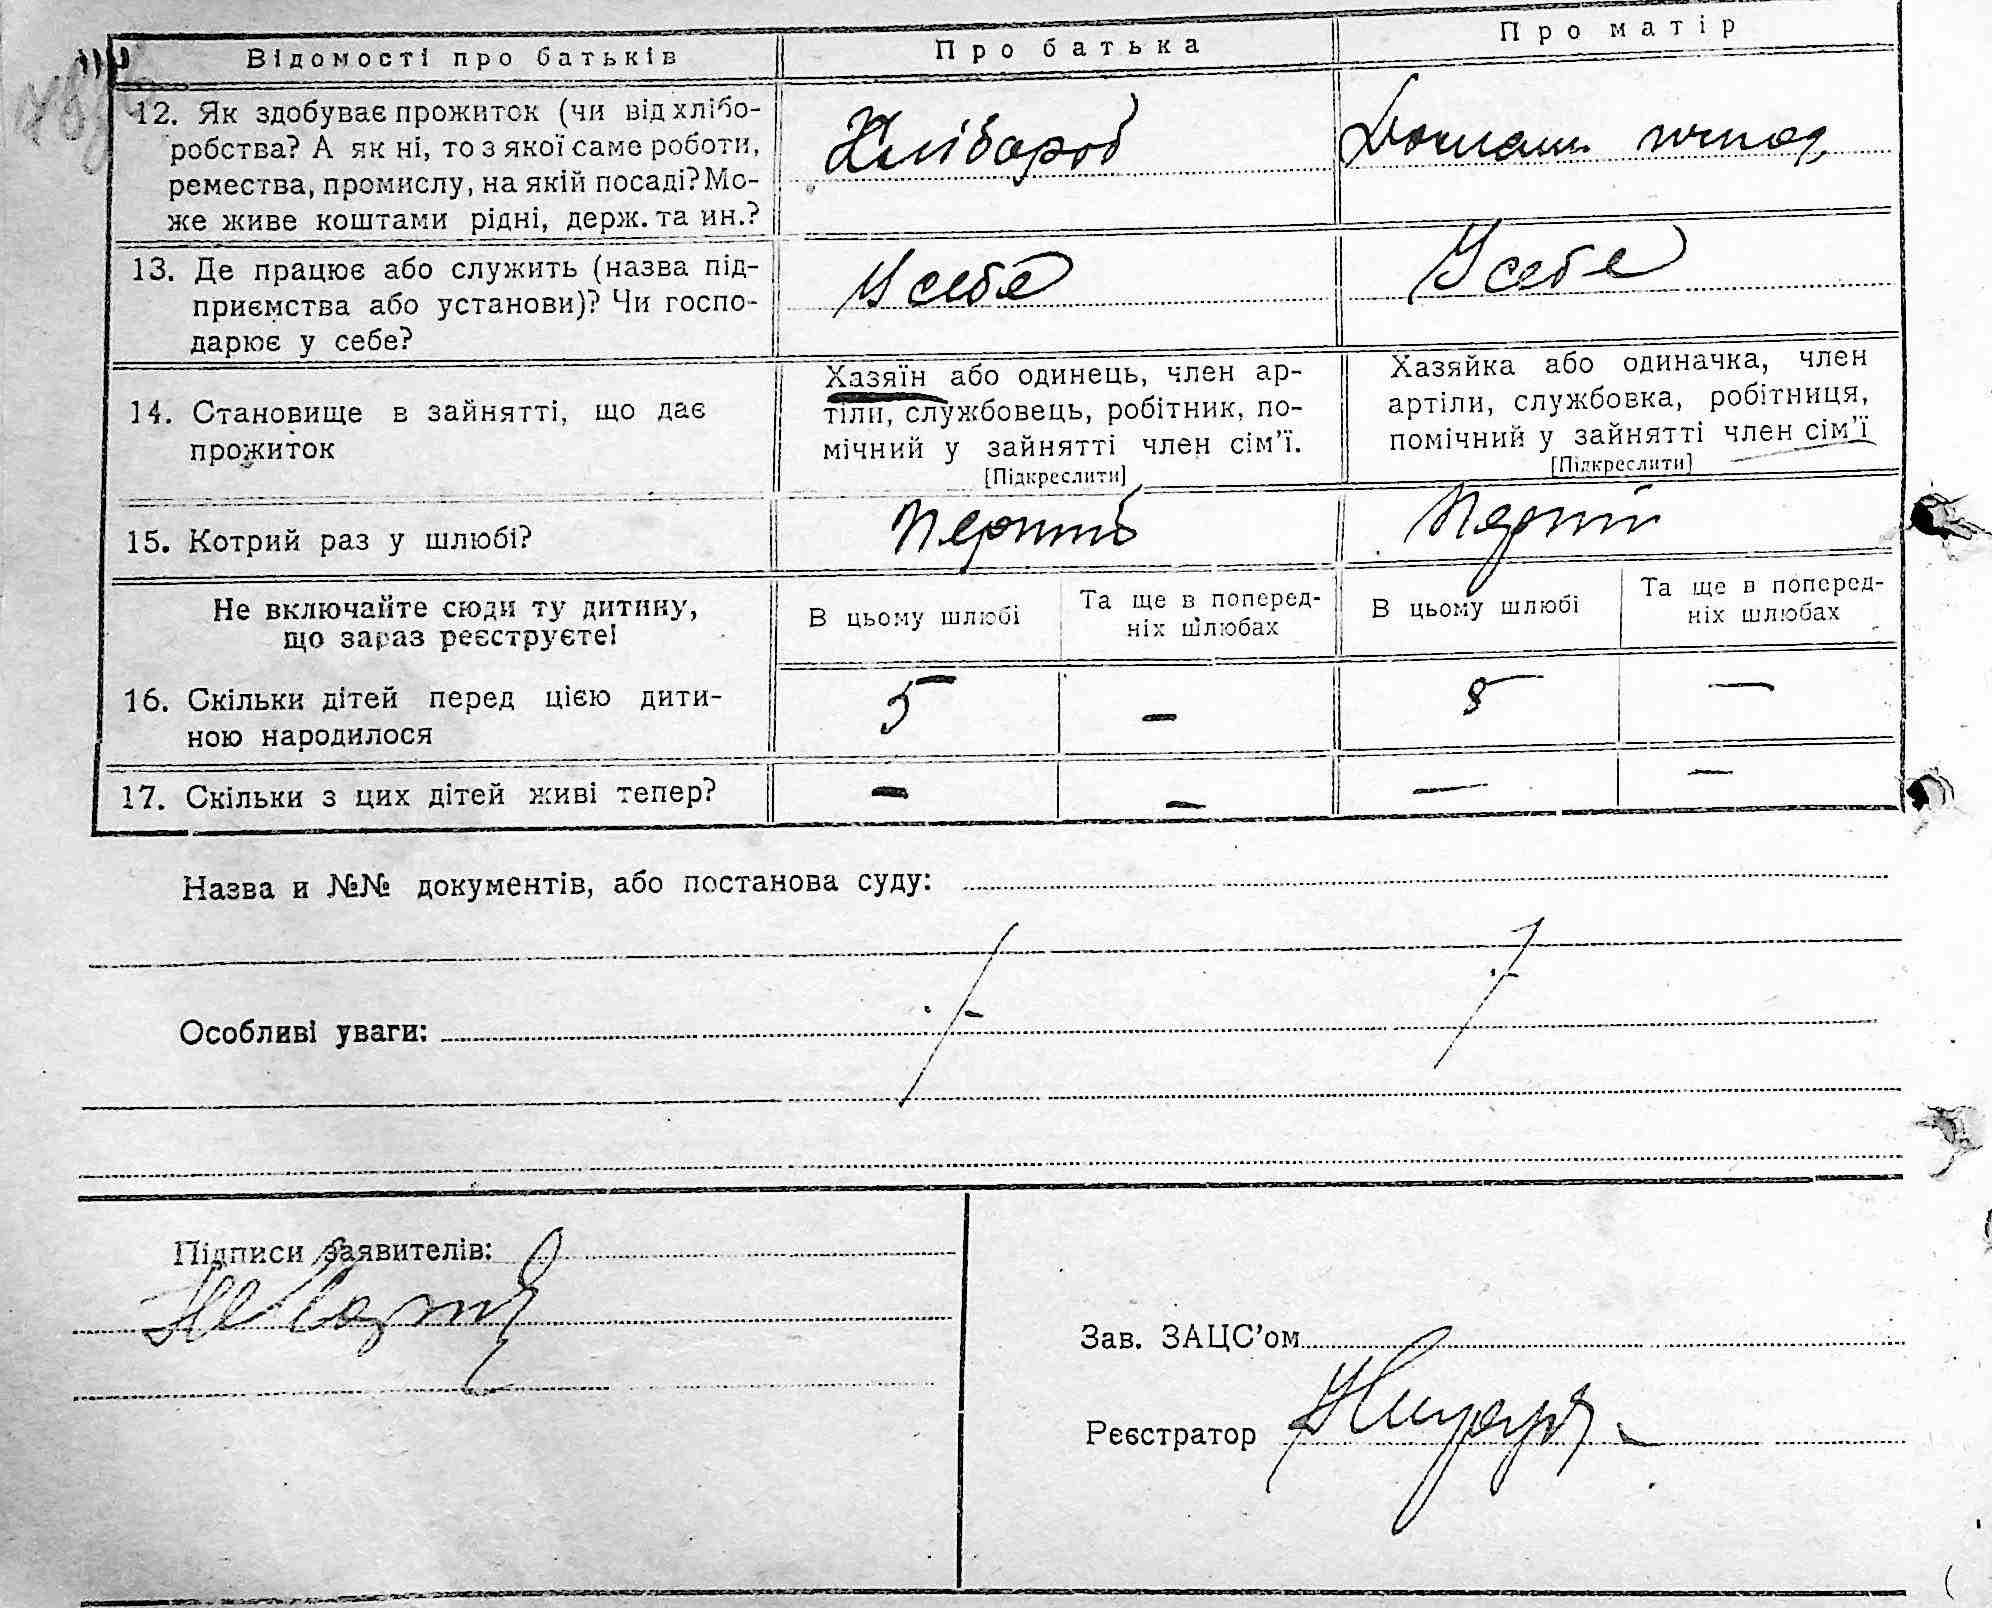 Відомості про батьків
Про батька
Про матір
12. Як здобуває прожиток (чи від хлібо-
робства? А як ні, то з якої саме роботи,
ремества, промислу, на якій посаді? Мо-
же живе коштами рідні, держ. та ин.?
Хлібороб
Домашн
13. Де працює або служить (назва під-
приємства або установи)? Чи госпо-
дарює у себе?
У себе
У себе
14. Становище в зайнятті, що дає
прожиток
Хазяїн або одинець, член ар-
тіли, службовець, робітник, по-
мічний у зайнятті член сім'ї.
[Підкреслити]
Хазяйка або одиначка, член
артіли, службовка, робітниця,
помічний у зайнятті член сім'ї
[Підкреслити]
15. Котрий раз у шлюбі?
Перший
Перший
Не включайте сюди ту дитину,
що зараз реєструєте!
В цьому шлюбі
Та ще в поперед-
ніх шлюбах
В цьому шлюбі
Та ще в поперед-
ніх шлюбах
16. Скільки дітей перед цією дити-
ною народилося
5
–
5
–
17. Скільки з цих дітей живі тепер?
–
–
–
–
Назва и №№ документів, або постанова суду:
Особливі уваги:
Підписи заявителів:
Зав. ЗАЦС'ом
Реєстратор